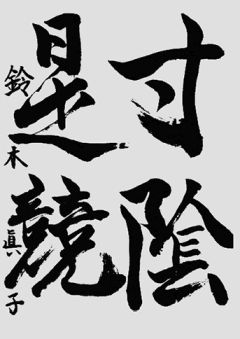 寸陰
是競
鈴木眞子